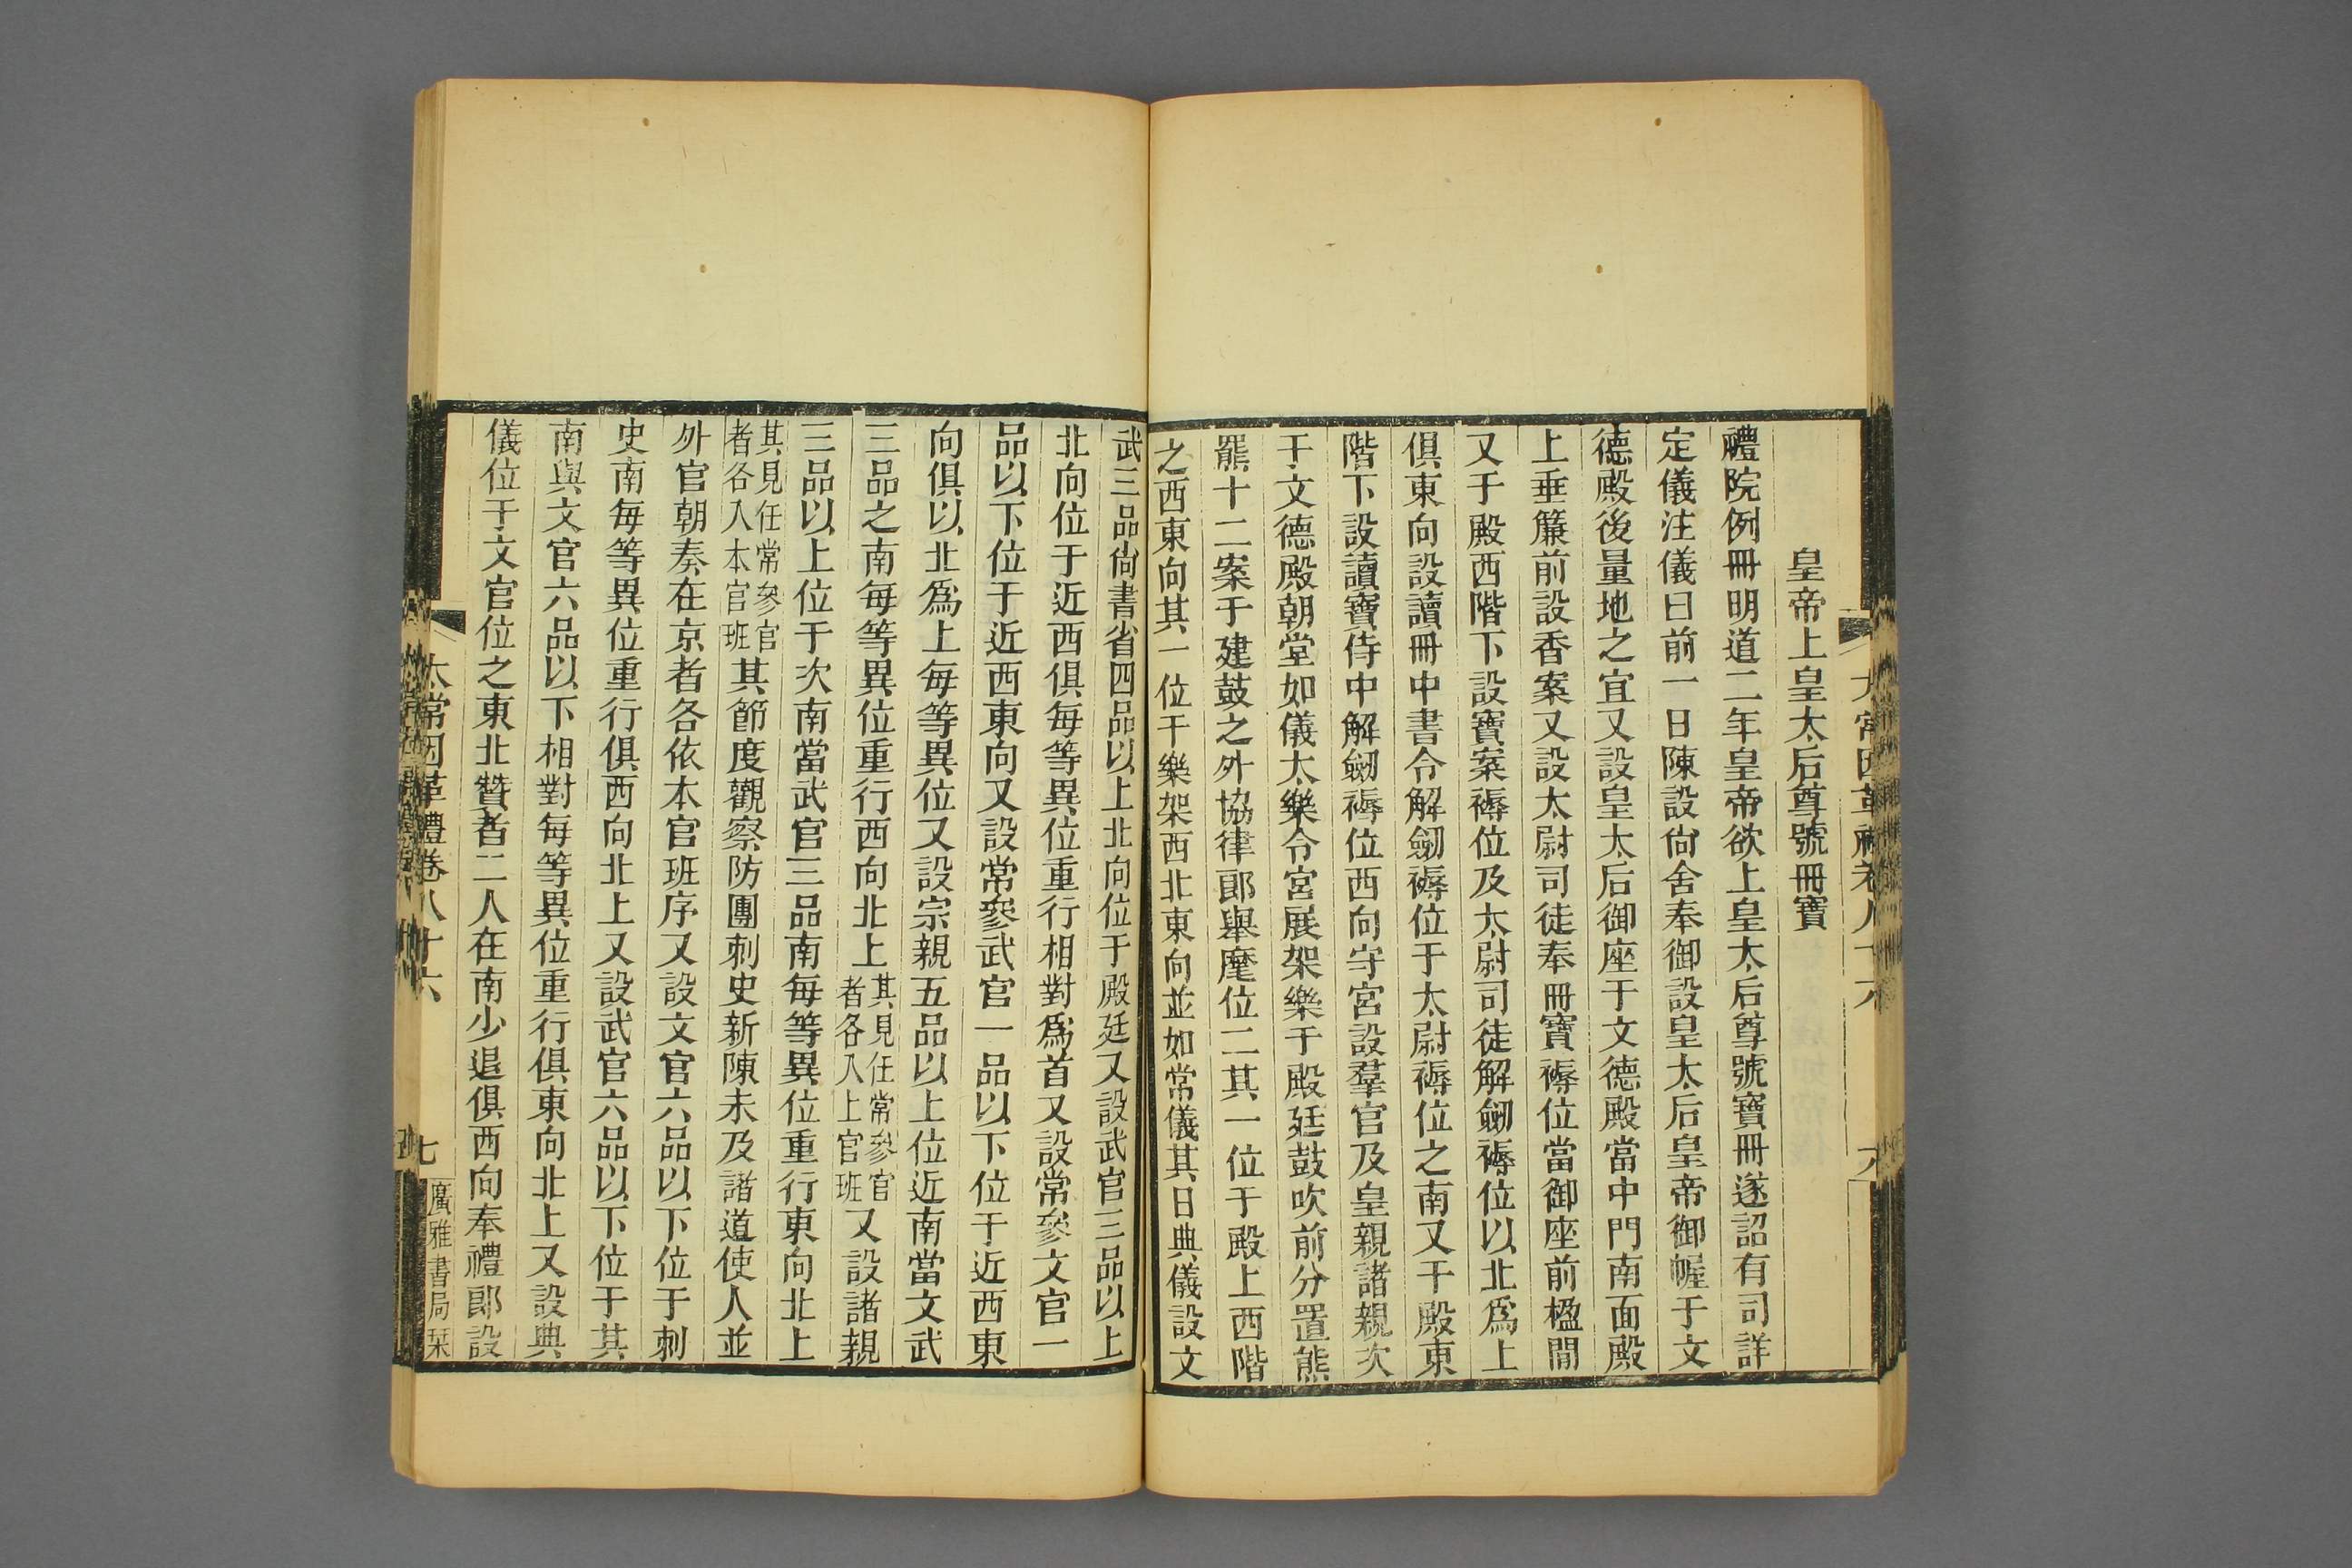 皇帝上皇太后尊號冊寶
禮院例冊明道二年皇帝欲上皇太后尊號寶冊遂詔有司詳
定儀注儀曰前一日陳設尙舍奉御設皇太后皇帝御幄于文
德殿後量地之宜又設皇太后御座于文德殿當中門南面殿
上垂簾前設香案又設太尉司徒奉冊寶褥位當御座前楹間
又于殿西階下設寶案褥位及太尉司徒解劒褥位以北爲上
俱東向設讀冊中書令解劒褥位于太尉褥位之南又于殿東
階下設讀寶侍中解劒褥位西向守宮設羣官及皇親諸親次
于文德殿朝堂如儀太樂令宮展架樂于殿廷鼓吹前分置熊
羆十二案于建鼓之外協律郞舉麾位二其一位于殿上西階
之西東向其一位于樂架西北東向並如常儀其日典儀設文
武三品尙書省四品以上北向位于殿廷又設武官三品以上
北向位于近西俱每等異位重行相對爲首又設常參文官一
品以下位于近西東向又設常參武官一品以下位于近西東
向俱以北爲上每等異位又設宗親五品以上位近南當文武
三品之南每等異位重行西向北上其見任常參官者各入上官班又設諸親
三品以上位于次南當武官三品南每等異位重行東向北上
其見任常參官者各入本官班其節度觀察防團刺史新陳未及諸道使人並
外官朝奏在京者各依本官班序又設文官六品以下位于刺
史南每等異位重行俱西向北上又設武官六品以下位于其
南與文官六品以下相對每等異位重行俱東向北上又設典
儀位于文官位之東北贊者二人在南少退俱西向奉禮郞設
太常因革禮卷八十六
七
廣雅書局栞